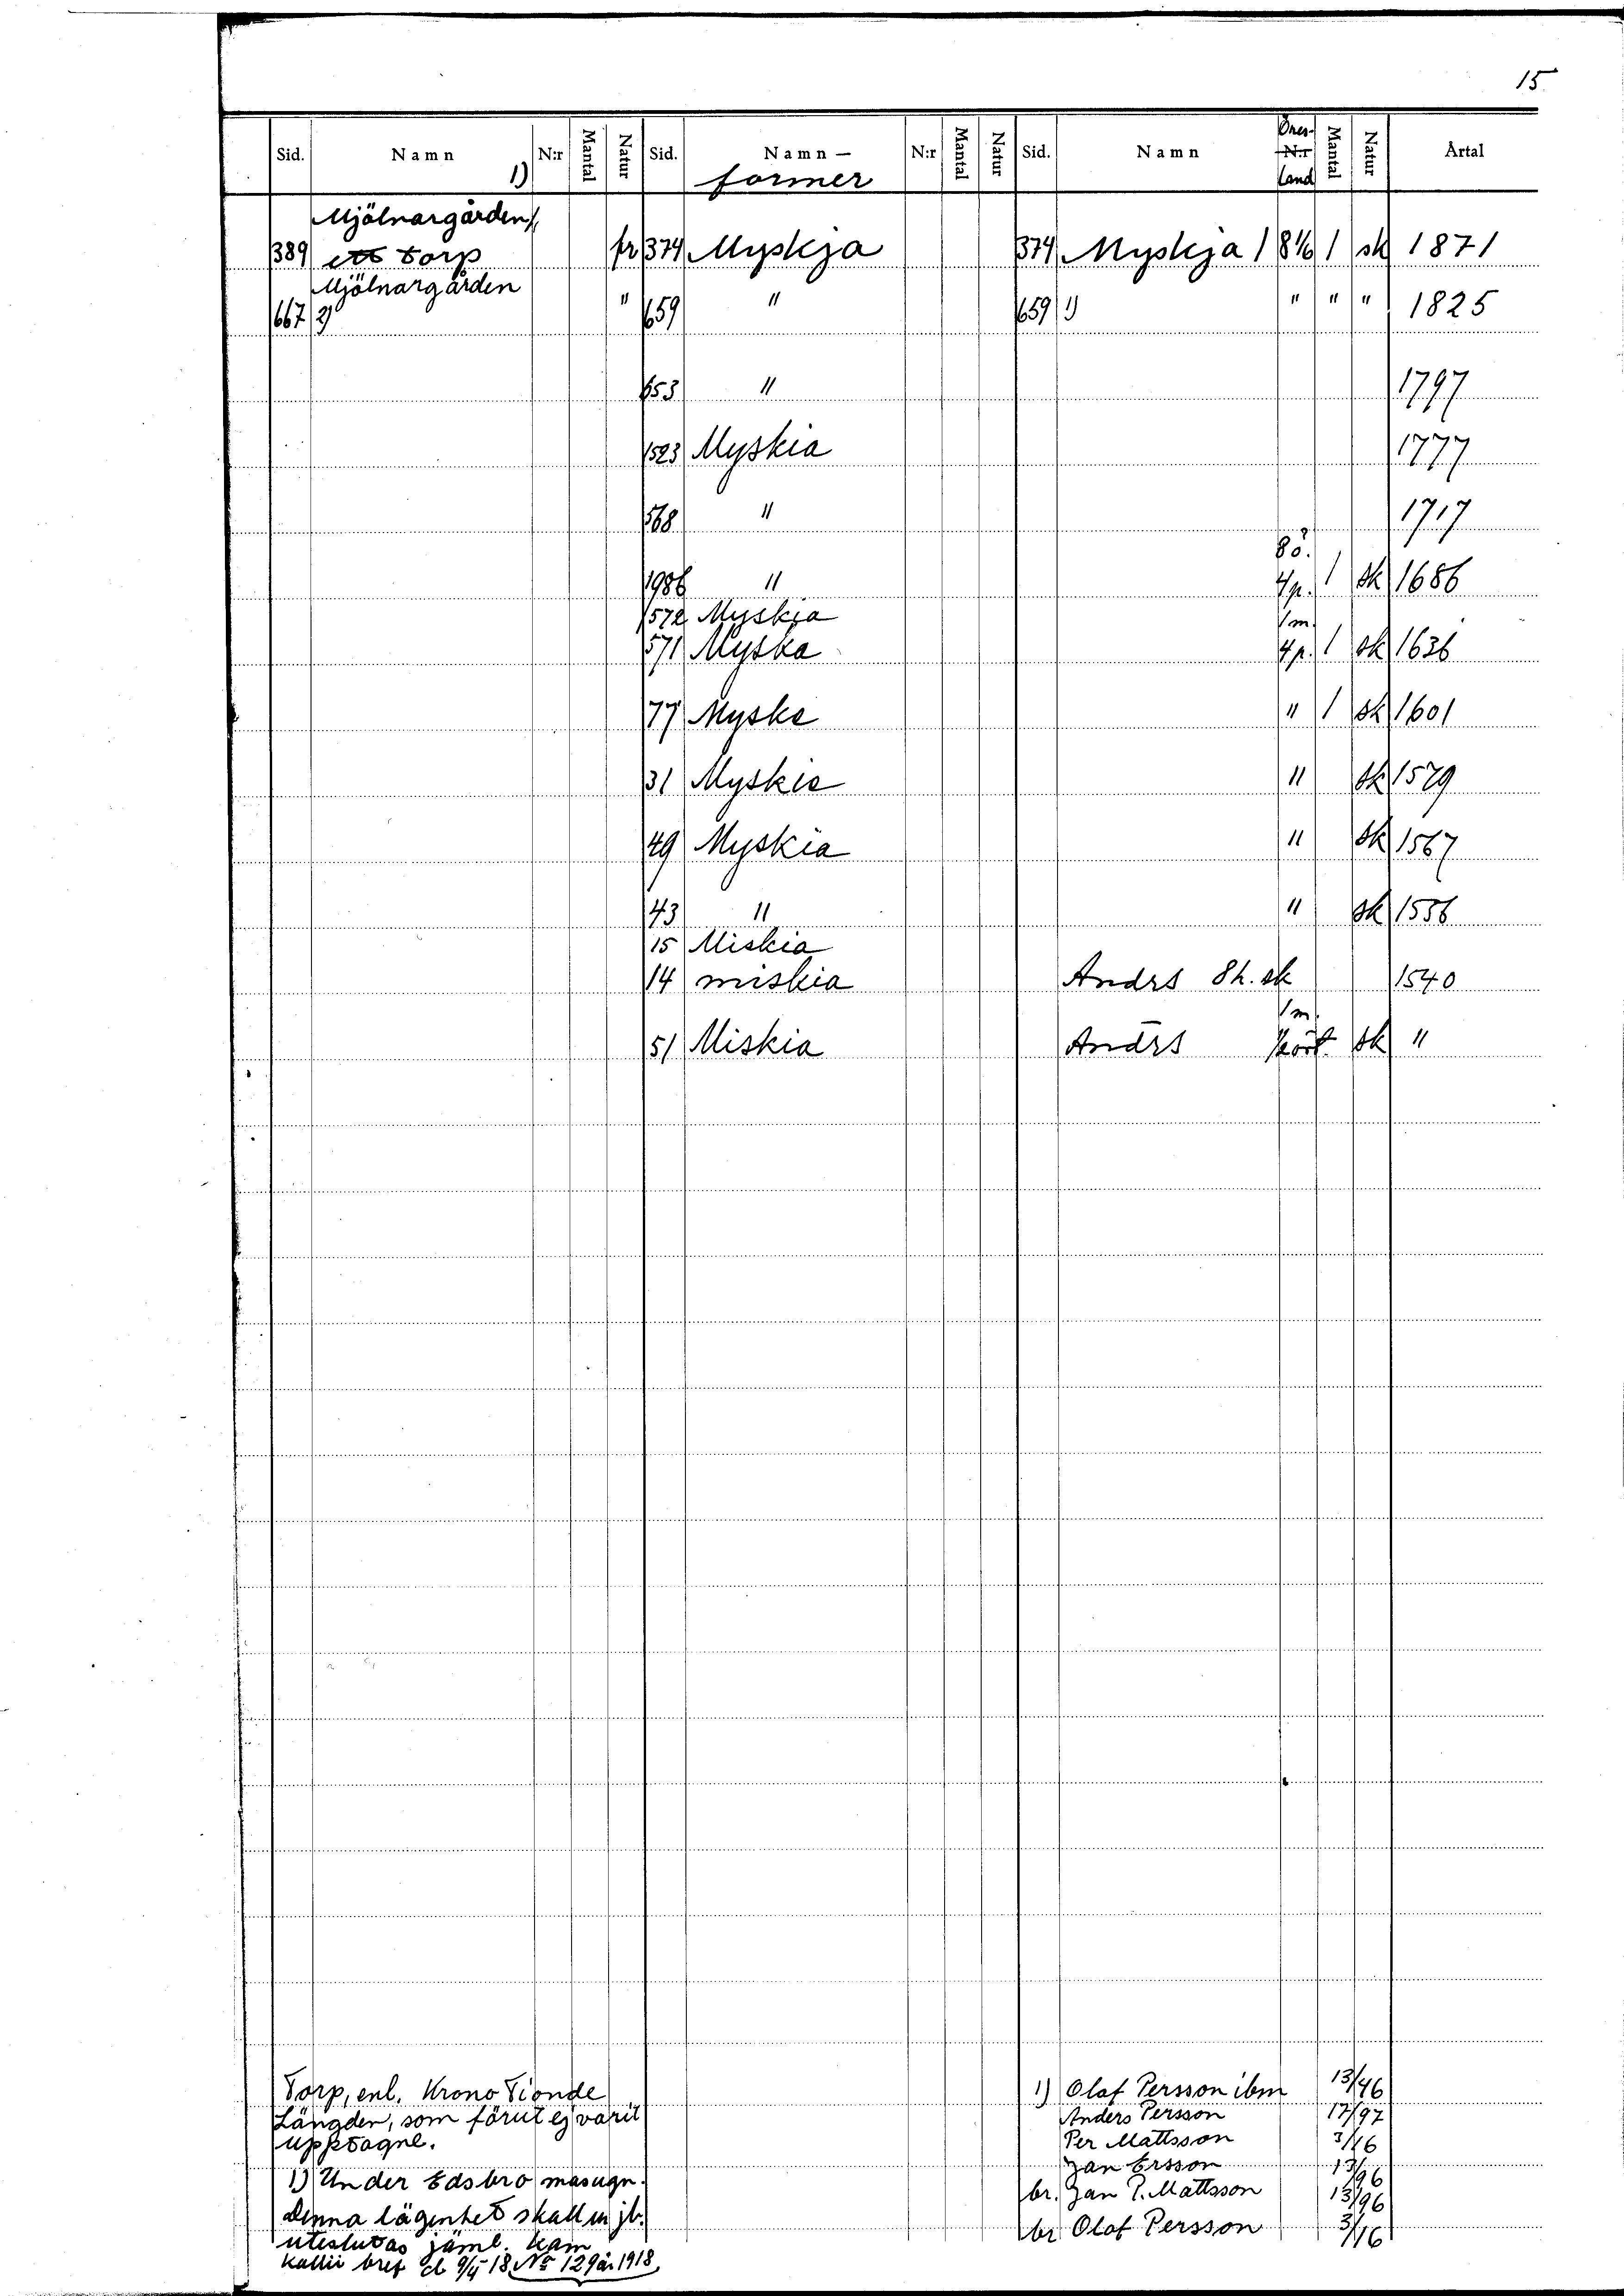 15
Sid. Namn 1) N:r Mantal Natur Sid. Namn - former N:r Mantal Natur Sid. Namn Öres N:r land Mantal Natur Årtal
Mjölnargården,
389 ett torp fr 374 Myskja 374 Myskja 1 8 1/6 1 sk 1871
Mjölnargården
667 2) " 659 " 659 1) " " " 1825
653 " 1797
523 Myskia 1777
568 " 1717
8ö.
1986 " 4p. 1 sk 1686
572 Myskja 1 m.
571 Myska 4p. 1 sk 1636
77 Myske " 1 sk 1601
31 Myskie " sk 1579
49 Myskia " sk 1567
43 " " sk 1556
15 Miskia
14 miskia Andrs Sh. sk 1540
1 m.
51 Miskia Andrs kort sk "
Torp, enl. Krono Tionde
Längden, som förut ej varit
upptagne.
1) Under Edsbro masugn.
Denna lägenhet skall ur jb.
uteslutas jäml. Kam
kollii bref d 9/4 18 No 129 år 1918
1) Olaf Persson ibm 13/96
Anders Persson 17/97
Per Mattsson 3/16
Jan Ersson 13/96
br. Jan P. Mattsson 13/96
br Olof Persson 3/16